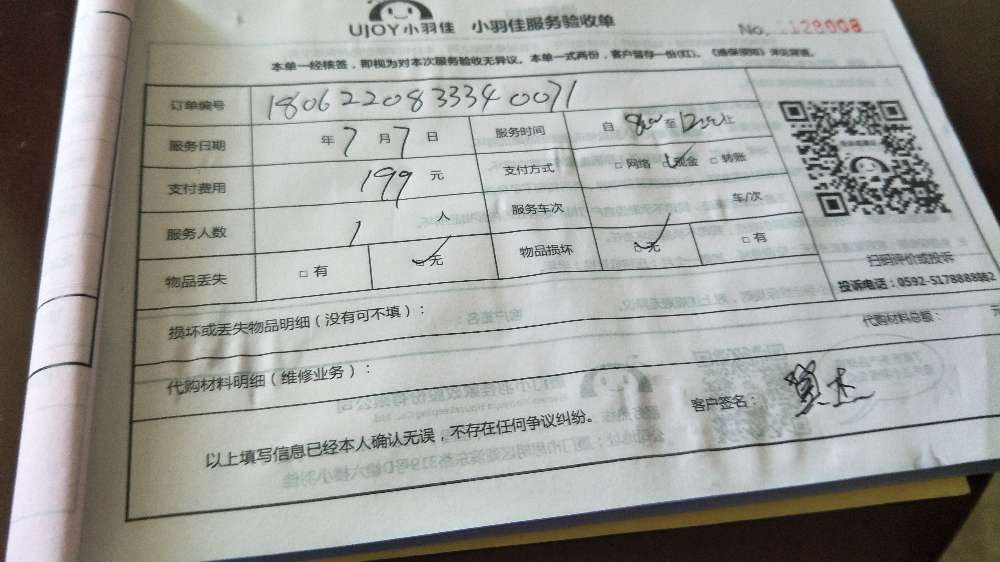 UJOY小羽佳 小羽佳服务验收单
No. 128008
本单一经核签，即视为对本次服务验收无异议。本单一式两份，客户留存一份(红)。
订单编号 180622083334 0071
服务日期 年7月7日 服务时间 自 800 至 1200 止
支付费用 199 元 支付方式 □网络 ☑现金 □转账
服务人数 1 人 服务车次 车/次
物品丢失 □有 ☑无 物品损坏 ☑无 □有
扫码评价或投诉
投诉电话：0592-5178888
损坏或丢失物品明细（没有可不填）：
代购材料明细（维修业务）： 代购材料总额： 元
以上填写信息已经本人确认无误，不存在任何争议纠纷。 客户签名：